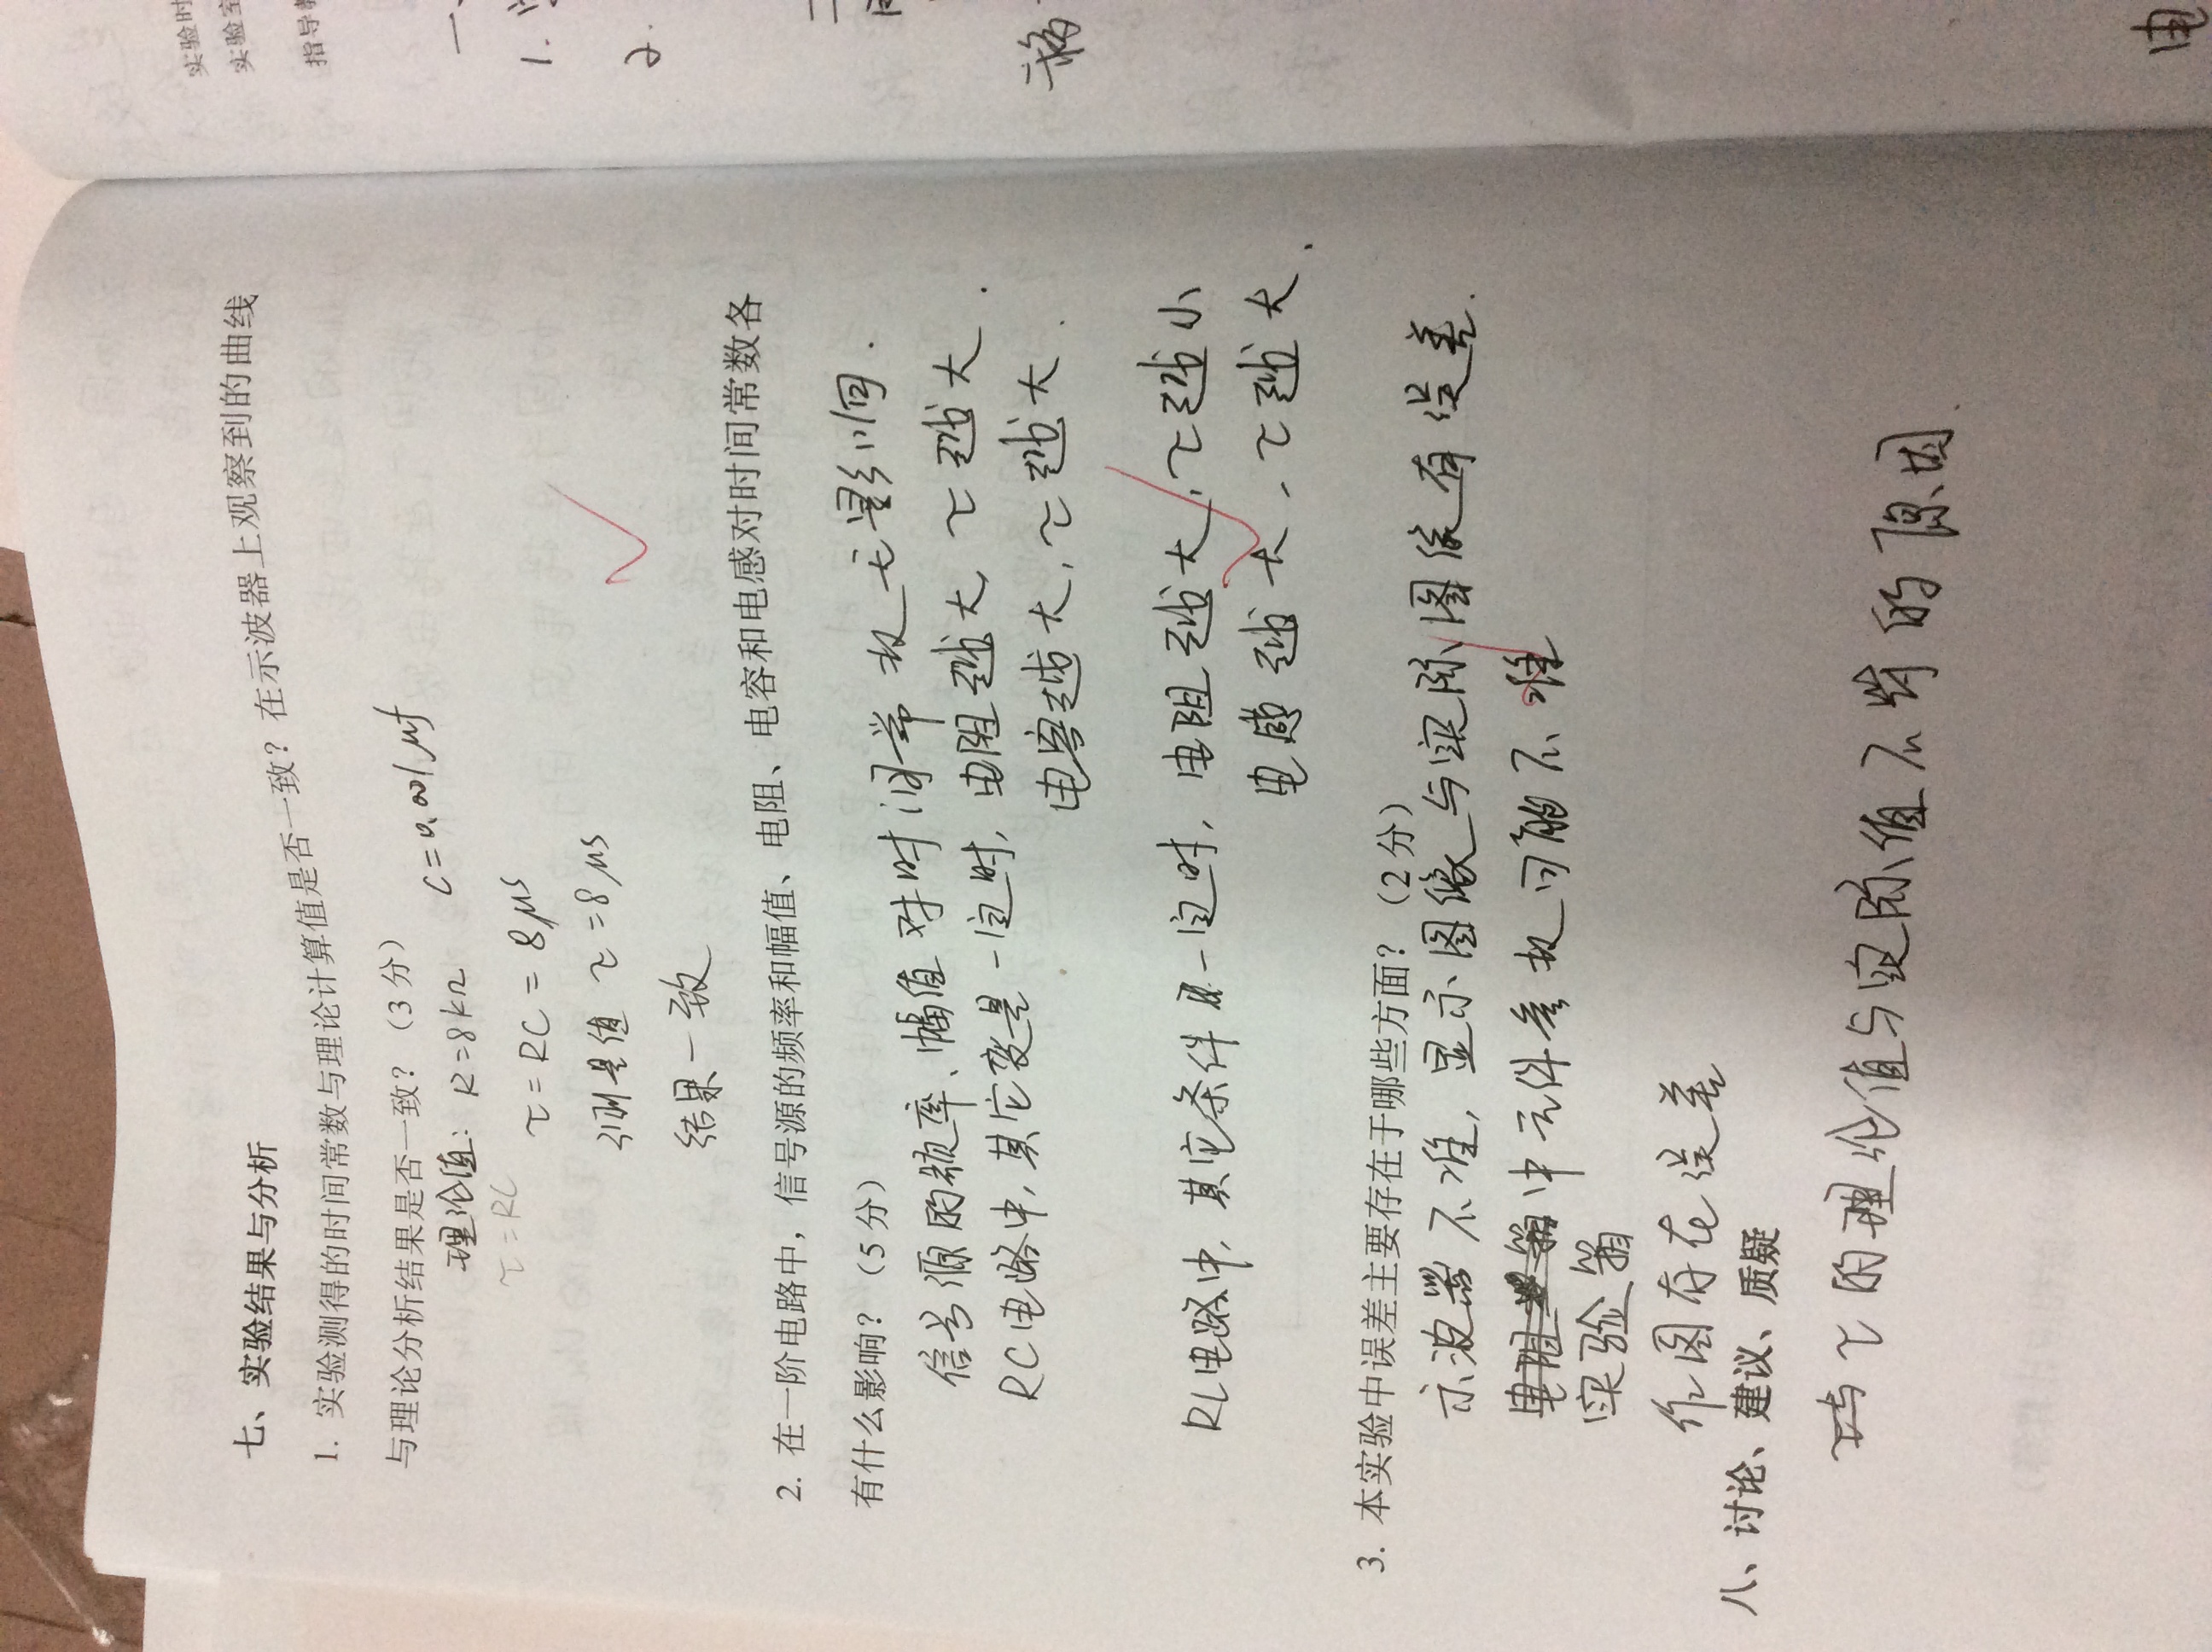 七、实验结果与分析
1. 实验测得的时间常数与理论计算值是否一致？在示波器上观察到的曲线
与理论分析结果是否一致？（3 分）
理论值： R=8kΩ C=0.001μf
τ=RC
τ=RC = 8μs
测量值 τ=8μs
结果一致
2. 在一阶电路中，信号源的频率和幅值、电阻、电容和电感对时间常数各
有什么影响？（5 分）
信号源的频率、幅值对时间常数无影响.
RC电路中, 其它变量一定时, 电阻越大, τ越大.
电容越大, τ越大.
RL电路中, 其它条件一定时, 电阻越大, τ越小
电感越大, τ越大.
3. 本实验中误差主要存在于哪些方面？（2 分）
示波器不准, 显示图像与实际图像有误差.
电阻 箱中元件参数可能不准
实验箱
作图存在误差
八、讨论、建议、质疑
τ与 τ的理论值与实际值不符的原因.
实验时
实验室
指导教
一、
1.
2.
二
移
电